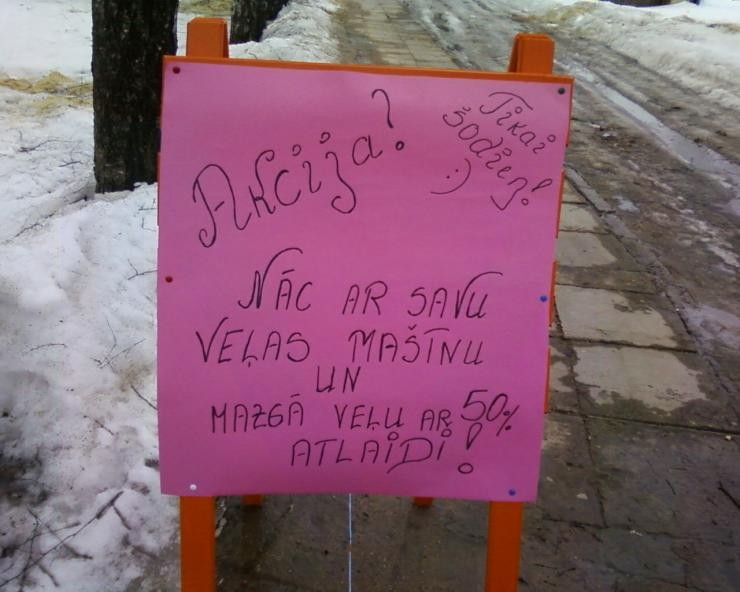 Akcija!
Tikai
šodien!
:)
NĀC AR SAVU
VEĻAS MAŠĪNU
UN
MAZGĀ VEĻU AR 50%
ATLAIDI!